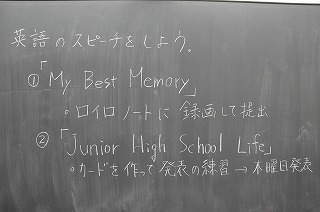 英語のスピーチをしよう。
①「My Best Memory」
。ロイロノートに録画して提出
②「Junior High School Life」
。カードを作って発表の練習→木曜日発表